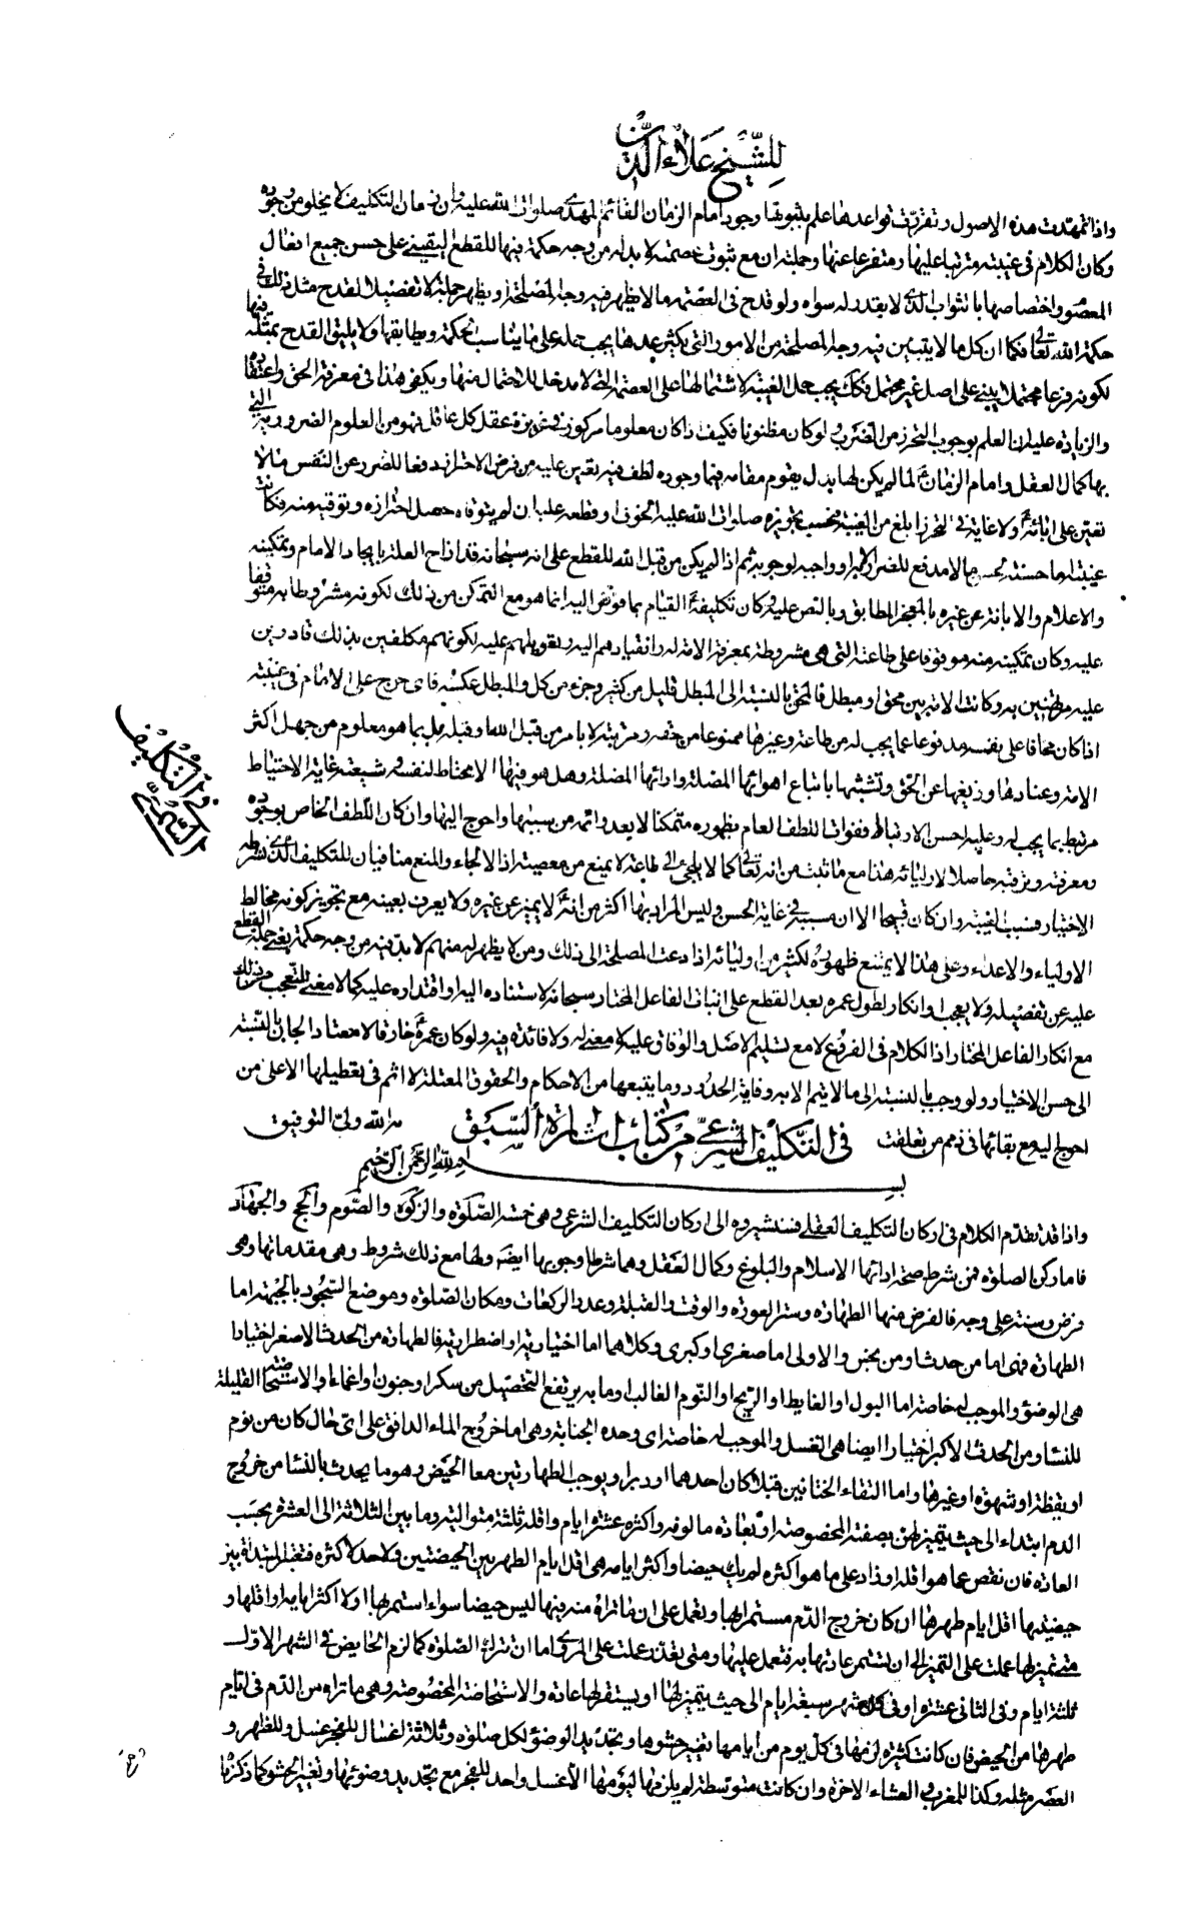 للشيخ علاء الدين
واذا تمهدت هذه الاصول وتقررت قواعدها علم بثبوتها وجود امام الزمان القائم المهدي صلوات الله عليه وان زمان التكليف لا يخلو من وجوده
وكان الكلام في غيبته مترتبا عليها ومتفرعا عنها وجملته ان مع ثبوت عصمته لا بد له من وجه حكمة فيها للقطع اليقيني على حسن جميع افعال
المعصوم واختصاصها بالثواب الذي لا يقدر له سواه ولو قدح في العصمة ما لا يظهر فيه وجه المصلحة ويظهر جملة لا تفصيلا لقدح مثل ذلك في
حكمة الله تعالى فكما ان كل ما لا يتبين فيه وجه المصلحة من الامور التي يكثر عدها يجب حمله على ما يناسب الحكمة ويطابقها ولا يليق القدح بمثله فيها
لكونه فرعا محتملا يبنى على اصل غير محتمل فكك يجب حمل الغيبة لاشتمالها على العصمة التي لا مدخل للاحتمال فيها ويكفي هذا في معرفة الحق واعتقاده
والزيادة عليه ان العلم بوجوب التحرز من الضرر لو كان مظنونا فكيف اذا كان معلوما مركوز في غريزة عقل كل عاقل فهو من العلوم الضرورية التي
بها كمال العقل وامام الزمان لما لم يكن لها بدل يقوم مقامه فيما وجوده لطف فيه تعين عليه من فرض الاحتراز دفعا للضرر عن النفس ما لا
تعين على ابائه ولا غاية في التحرز ابلغ من الغيبة فبحسب تجويزه صلوات الله عليه الخوف او قطعه عليه ان لم يتوقاه حصل احترازه وتوقيه منه فكانت
غيبته اما حسنة بحسنها لا مدفع للضرر الا بها او واجبة لوجوبه ثم اذا لم يكن من قبل الله للقطع على انه سبحانه قد ازاح العلة بايجاد الامام وتمكينه
والاعلام والابانة عن غيره بالمعجز المطابق وبالنص عليه وكان تكليفه القيام بما فوض اليه انما هو مع التمكن من ذلك لكونه مشروطا به موقوفا
عليه وكان تمكينه منه موقوفا على طاعته التي هي مشروطة بمعرفة الامة له وانقيادهم اليه وتعويلهم عليه لكونهم مكلفين بذلك قادرين
عليه مرتهنين به وكانت الامة بين محق ومبطل فالمحق بالنسبة الى المبطل قليل من كثير وجزء من كل والمبطل عكسه فاي حرج على الامام في غيبته
اذا كان مخافا على نفسه مدفوعا عما يجب له من طاعة وغيرها ممنوعا من حقه ومرتبته لا بامر من قبل الله او قبله بل بما هو معلوم من جهل اكثر
الامة وعنادها وزيغها عن الحق وتشبثها باتباع اهوائها المضلة وارائها المضلة وهل هو فيها الا محتاط لنفسه وشيعته غاية الاحتياط
مرتبط بما يجب له وعليه احسن الارتباط ففوات اللطف العام بظهوره متمكنا لا يعدو اثمه من سببها واحوج اليها وان كان اللطف الخاص بوجوده
ومعرفته وترقبه حاصلا لاوليائه هذا مع ما ثبت من انه تعالى كما لا يلجئ الى طاعة لا يمنع من معصية اذ الالجاء والمنع منافيان للتكليف الذي شرطه
الاختيار فسبب الغيبة وان كان قبيحا الا ان مسببه في غاية الحسن وليس المراد بها اكثر من انه لا يميز عن غيره ولا يعرف بعينه مع تجويز كونه مخالط
الاولياء والاعداء وعلى هذا لا يمتنع ظهوره لكثير من اوليائه اذا دعت المصلحة الى ذلك ومن لا يظهر له منهم لا بد فيه من وجه حكمة يغني جملة القطع
عليه عن تفصيله ولا يعجب او انكار لطول عمره بعد القطع على اثبات الفاعل المختار سبحانه لاستناده اليه واقتداره عليه كما لا معنى للتعجب من ذلك
مع انكار الفاعل المختار اذ الكلام في الفرع لا مع تسليم الاصل والوفاق عليه لا معنى له ولا فائدة فيه ولو كان عمره خارقا للمعتاد الجاز بالنسبة
الى حسن الاختيار ولو وجب بالنسبة الى ما لا يتم الا به وفاية الحدود وما يتبعها من الاحكام والحقوق المعتلة لا اثم في تعطيلها الا على من
احوج اليه مع بقائها في ذمم من تعلقت به والله ولي التوفيق
في التكليف الشرعي من كتاب اشارة السبق
بسم الله الرحمن الرحيم
في التكليف
الشرعي
واذا قد تقدم الكلام في اركان التكليف العقلي فسنشير وه الى اركان التكليف الشرعي وهي خمسة الصلوة والزكوة والصوم والحج والجهاد
فاما ركن الصلوة فمن شرط صحة ادائها الاسلام والبلوغ وكمال العقل وهما شرطا وجوبها ايضا ولها مع ذلك شروط وهي مقدماتها وهي
فرض وسنة على وجه فالفرض منها الطهارة وستر العورة والوقت والقبلة وعدد الركعات ومكان الصلوة وموضع السجود بالجبهة اما
الطهارة فهي اما من حدث او من نجس والاولى اما صغرى او كبرى وكلاهما اما اختيارية او اضطرارية فالطهارة من الحدث الاصغر اختيارا
هي الوضوء والموجب له خاصة اما البول او الغايط او الريح او النوم الغالب او ما به يرتفع التحصيل من سكر او جنون او اغماء او الاستحاضة القليلة
للنساء ومن الحدث الاكبر اختيارا ايضا هي الغسل والموجب له خاصة اي وحده الجنابة وهي اما خروج الماء الدافق على اي حال كان من نوم
او يقظة او شهوة او غيرها واما التقاء الختانين قبلا كان احدهما او دبرا ويوجب الطهارتين معا الحيض وهو ما يحدث بالنساء من خروج
الدم ابتداء الى حيث يتميز لهن بصفته المخصوصة او بعادة مالوفة واكثره عشرة ايام واقله ثلثة متوالية وما بين الثلاثة الى العشرة بحسب
العادة فان نقص عما هو اقله او زاد على ما هو اكثره لم يك حيضا واكثر ايامه هي اقل ايام الطهر بين الحيضتين ولا حد لاكثره فتعتبر المبتدأة بين
حيضتيها اقل ايام طهرها ان كان خروج الدم مستمرا بها وتعمل على ان ما تراه منه فيها ليس حيضا سواء استمر بها اولا اكثر ايامه او اقلها و
متى تميز لها عملت على التميز الى ان تستمر عادتها به فتعمل عليها ومتى تعذر عملت على المروي اما ان تترك الصلوة كما لزم الحايض في الشهر الاول
ثلثة ايام وفي الثاني عشرة او في كل شهر سبعة ايام الى حيث يتميز لها او يستقر لها عادة والاستحاضة المخصوصة وهي ما تراه من الدم في ايام
طهرها من الحيض فان كانت كثيرة لزمها في كل يوم من ايامها تغيير حشوها وتجديد الوضوء لكل صلوة وثلاثة اغسال للفجر غسل وللظهر و
العصر مثله وكذا للمغرب والعشاء الاخرة وان كانت متوسطة لم يلزمها ليومها الا غسل واحد للفجر مع تجديد وضوئها وتغيير الحشو كما ذكرنا